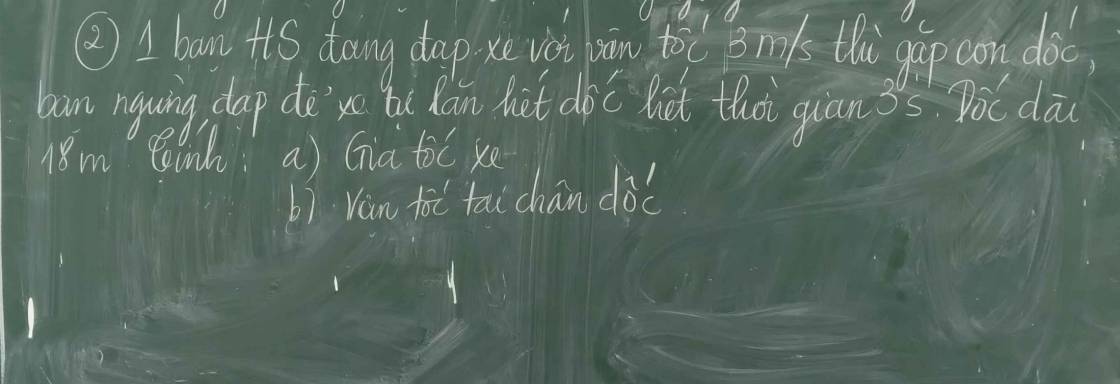 ② 1 bạn HS đang đạp xe với vận tốc 3 m/s thì gặp con dốc,
bạn ngừng đạp để xe tự lăn hết dốc hết thời gian 3s. Dốc dài
18m. Tính: a) Gia tốc xe
b) Vận tốc tại chân dốc